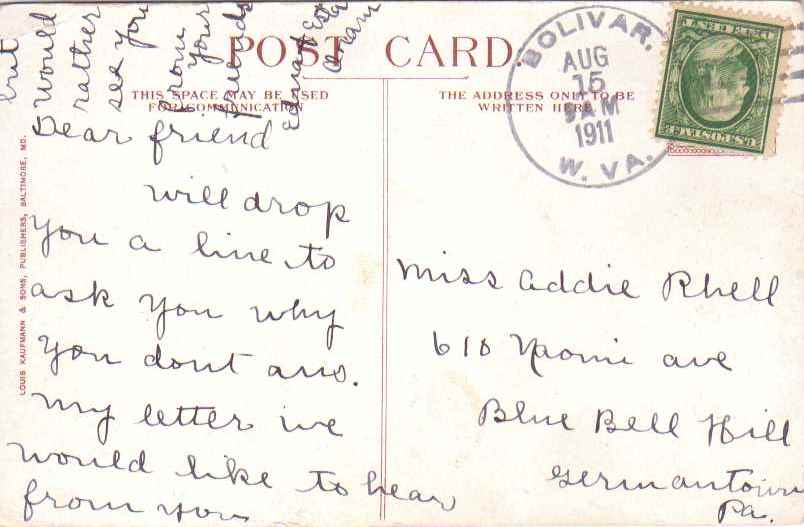 POST CARD.
THIS SPACE MAY BE USED
FOR COMMUNICATION
THE ADDRESS ONLY TO BE
WRITTEN HERE
BOLIVAR,
AUG
15
AM
1911
W. VA.
U.S. POSTAGE
LOUIS KAUFMANN & SONS, PUBLISHERS, BALTIMORE, MD.
Dear friend
will drop
you a line to
ask you why
you dont ans.
my letter we
would like to hear
from you
but
would
rather
see you
from
your
friends
Edna
Miss Addie Rhell
610 Naomi ave
Blue Bell Hill
Germantown
Pa.